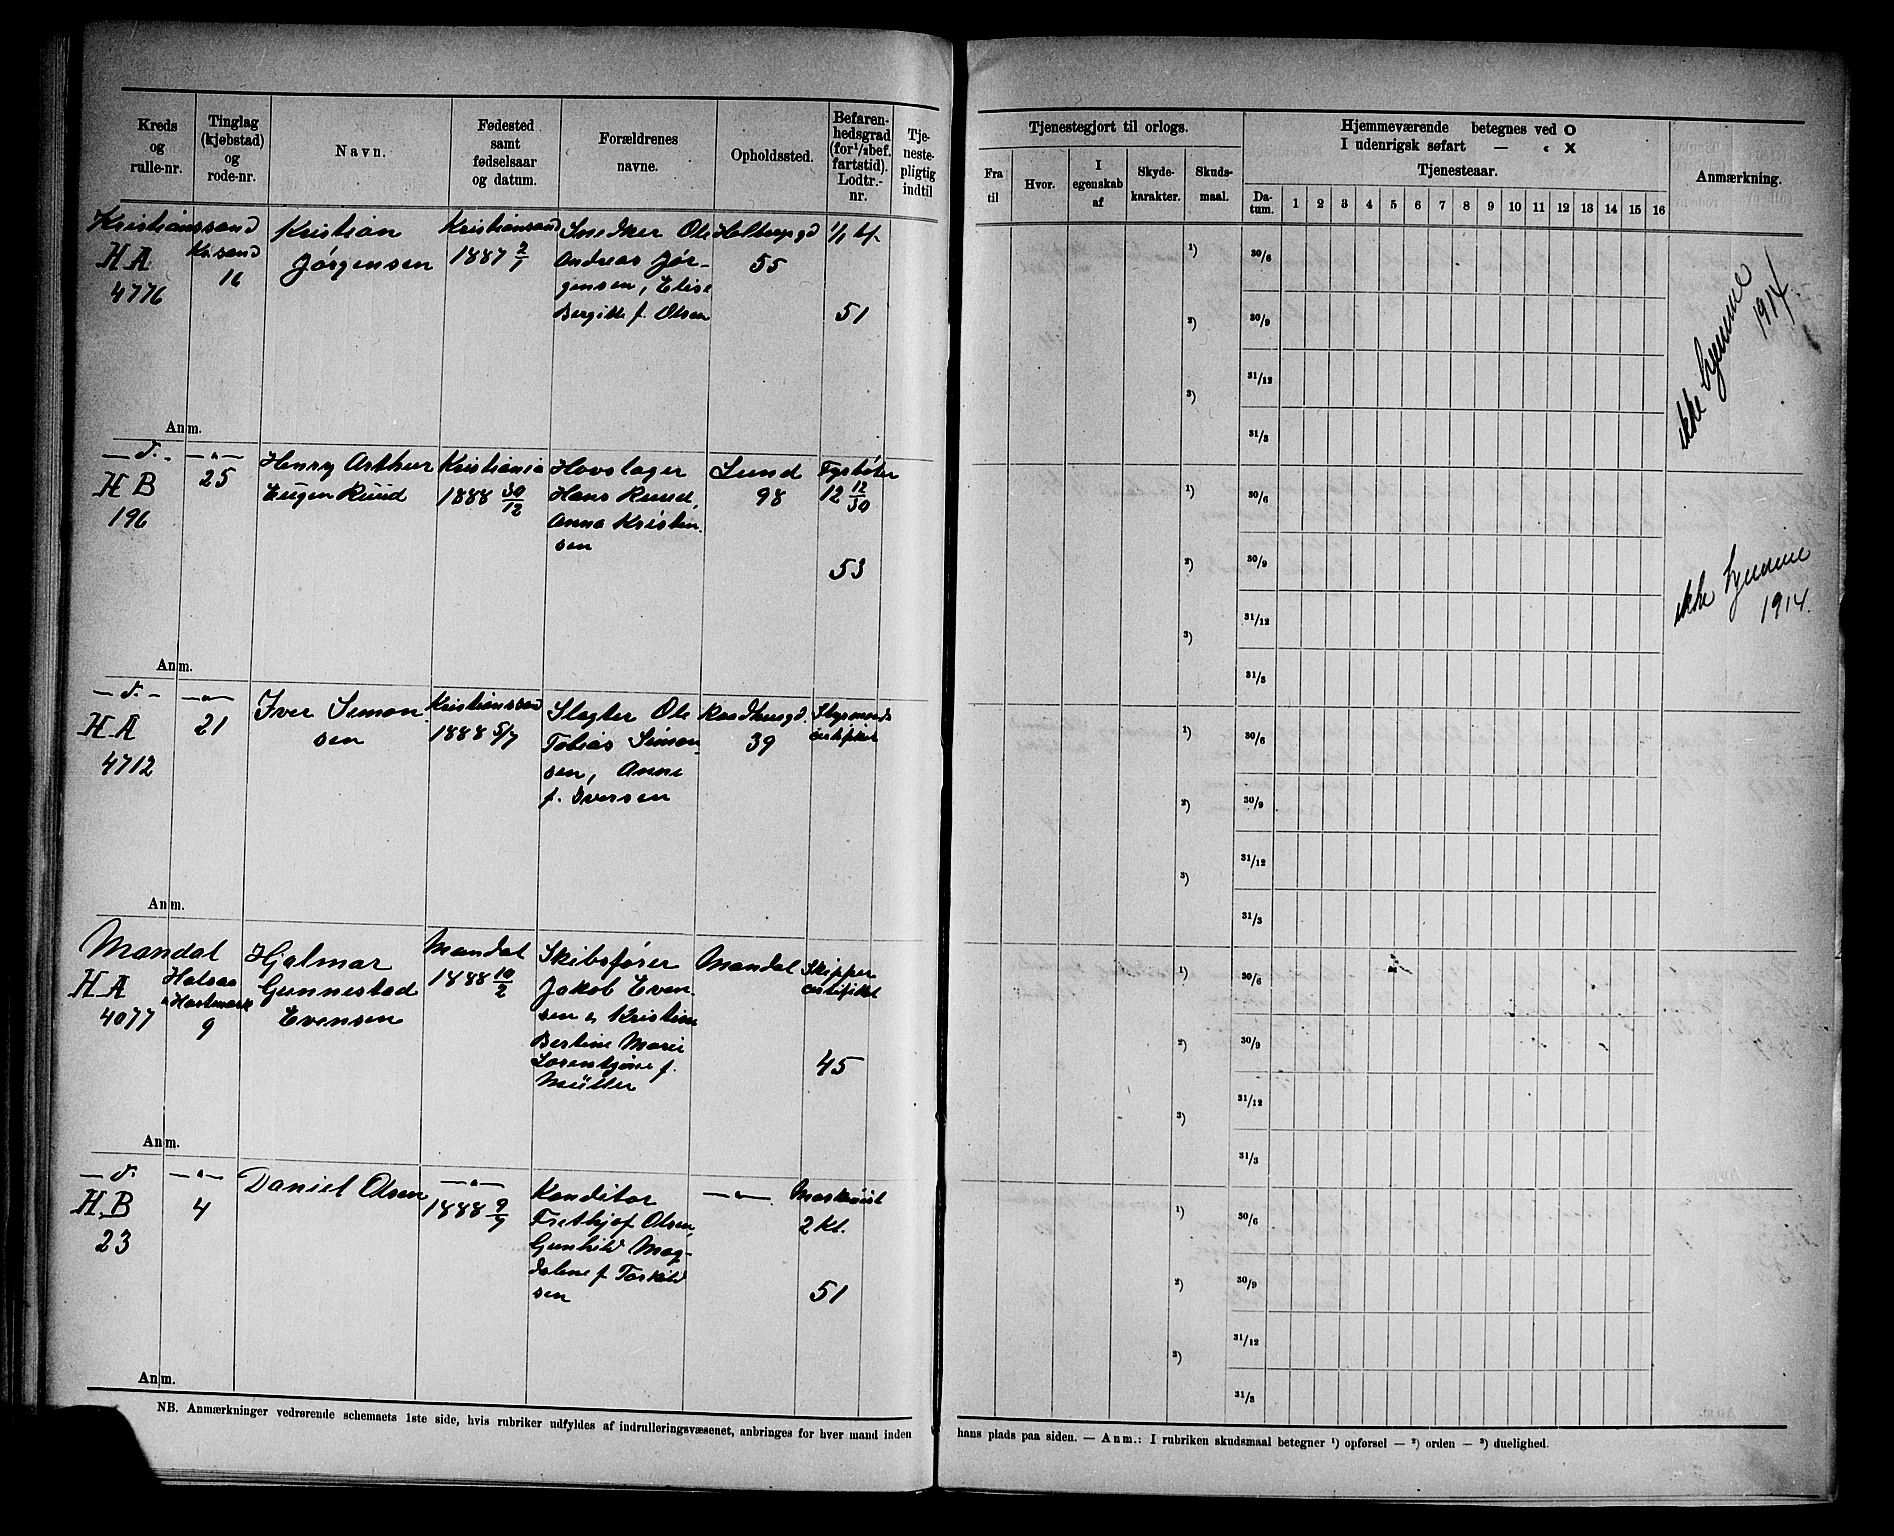 Kreds og rulle-nr.
Tinglag (kjøbstad) og rode-nr.
Navn.
Fødested samt fødselsaar og datum.
Forældrenes navne.
Opholdssted.
Befaren-hedsgrad (for ½ bef. fartstid). Lodtr.-nr.
Tje-neste-pligtig indtil
Tjenestegjort til orlogs.
Fra til
Hvor.
I egenskab af
Skyde-karakter.
Skuds-maal.
Hjemmeværende betegnes ved O
I udenrigsk søfart — " X
Tjenesteaar.
Da-tum.
1 2 3 4 5 6 7 8 9 10 11 12 13 14 15 16
Anmærkning.
Kristianssand
H A
4776
Kr.sand
16
Kristian
Jørgensen
Kristianssand
1887 2/1
Snedker Ole
Andreas Jør-
gensen, Elise
Bergitte f. Olsen
Holbergsgd
55
1/1 bf.
51
1)
2)
3)
30/6
30/9
31/12
31/3
ikke hjemme
1914
Anm.
— d. -
H B
196
— " —
25
Henry Arthur
Eugen Ruud
Kristiania
1888 30/12
Hovslager
Hans Ruud,
Anna Kristin-
sen
Lund
98
Fyrbøter
12 12/30
53
1)
2)
3)
30/6
30/9
31/12
31/3
ikke hjemme
1914.
Anm.
— d. -
H A
4712
— " —
21
Iver Simon
sen
Kristianssand
1888 5/7
Slagter Ole
Tobias Simon-
sen, Anne
f. Iversen
Raadhusgd.
39
Styrmands
certifikat
1)
2)
3)
30/6
30/9
31/12
31/3
Anm.
Mandal
H A
4077
Halsaa
& Hartmark
9
Hjalmar
Gunnestad
Evensen
Mandal
1888 10/2
Skibsfører
Jakob Even-
sen & Kristine
Bertine Marie
f.
Müller
Mandal
Skipper
certifikat
45
1)
2)
3)
30/6
30/9
31/12
31/3
Anm.
— d. -
H B
23
— " —
4
Daniel Olsen
— " —
1888 9/7
Konditor
Frethjof Olsen,
Gunhild Mag-
dalene f. Torkild
sen
— " —
Maskinist
2 kl.
51
1)
2)
3)
30/6
30/9
31/12
31/3
Anm.
NB. Anmærkninger vedrørende schemaets 1ste side, hvis rubriker udfyldes af indrulleringsvæsenet, anbringes for hver mand inden hans plads paa siden. — Anm.: I rubriken skudsmaal betegner ¹) opførsel — ²) orden — ³) duelighed.